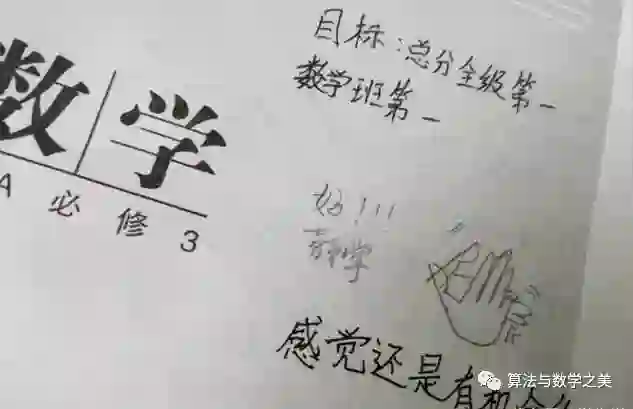 数学
A 必修3
目标:总分全级第一
数学班第一
好!!!
感觉还是有机会
算法与数学之美